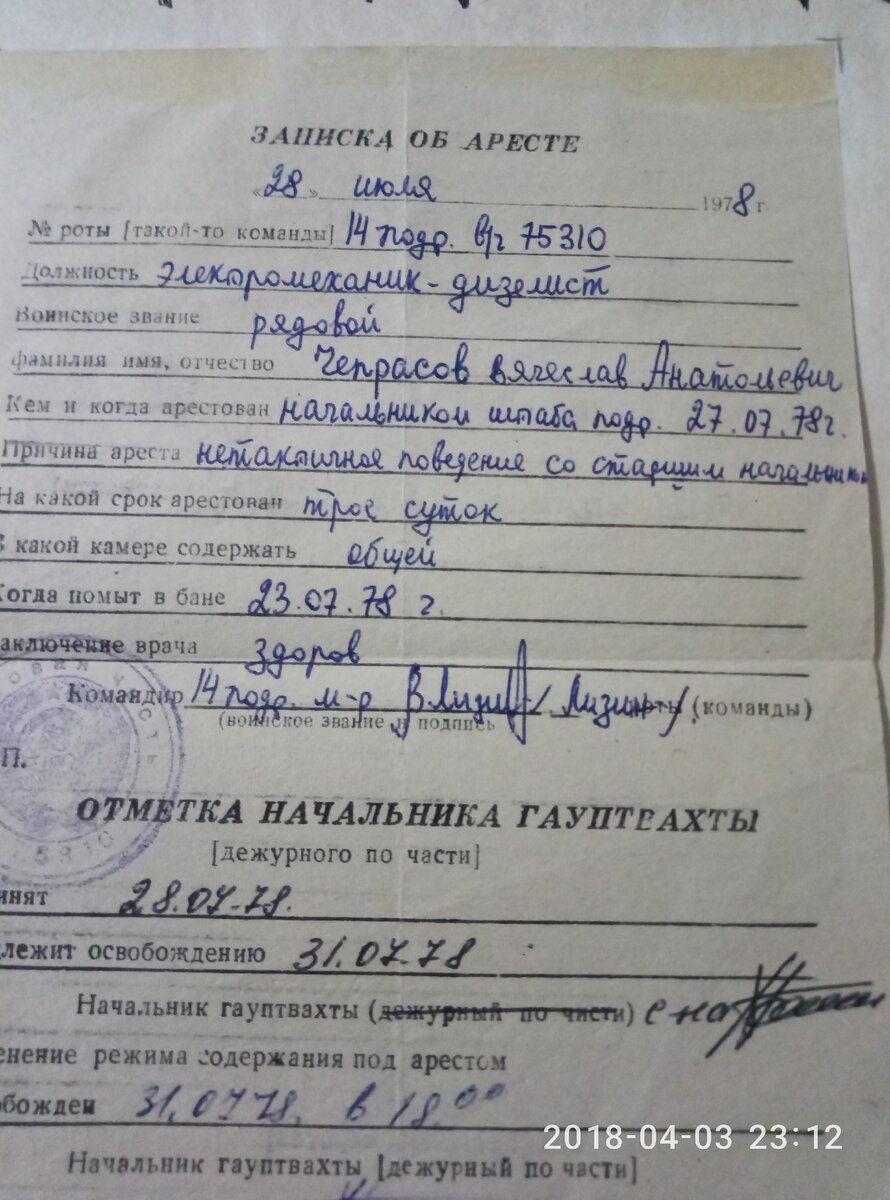 ЗАПИСКА ОБ АРЕСТЕ
"28" июля 1978 г.
№ роты [такой-то команды] 14 подр. в/ч 75310
Должность Электромеханик-дизелист
Воинское звание рядовой
фамилия имя, отчество Чепрасов Вячеслав Анатольевич
Кем и когда арестован начальником штаба подр. 27.07.78г.
Причина ареста нетактичное поведение со старшим начальником
На какой срок арестован трое суток
В какой камере содержать общей
Когда помыт в бане 23.07.78 г.
аключение врача здоров
Командир 14 подр. м-р ВЛизин /Лизин/ роты (команды)
(воинское звание и подпись
П.
ОТМЕТКА НАЧАЛЬНИКА ГАУПТВАХТЫ
[дежурного по части]
инят 28.07.78.
длежит освобождению 31.07.78
Начальник гауптвахты (дежурный по части) с-на
енение режима содержания под арестом
обожден 31.07.78. в 18.00
Начальник гауптвахты [дежурный по части]
2018-04-03 23:12